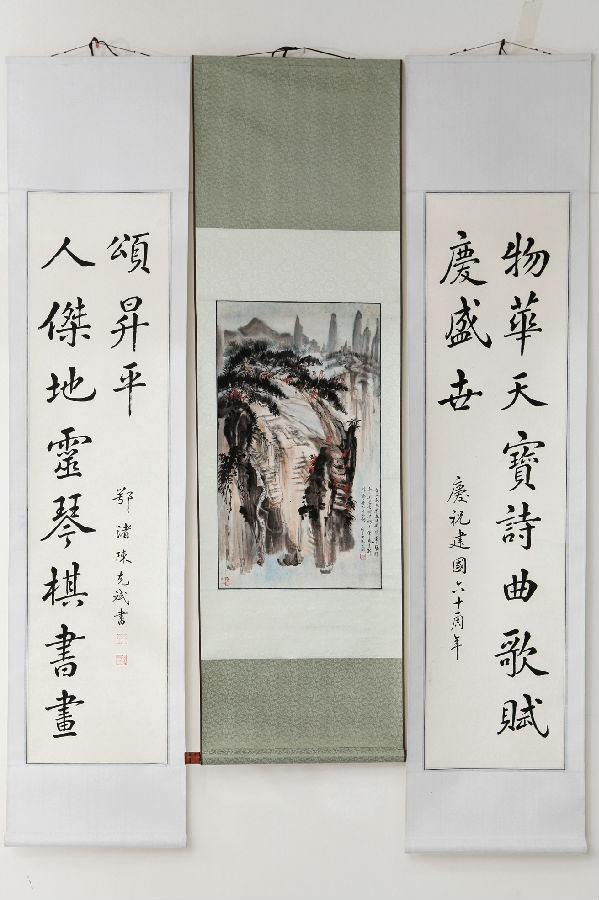 物華天寶詩曲歌賦
慶盛世
慶祝建國六十周年
人傑地靈琴棋書畫
頌昇平
鄂渚陳克斌書